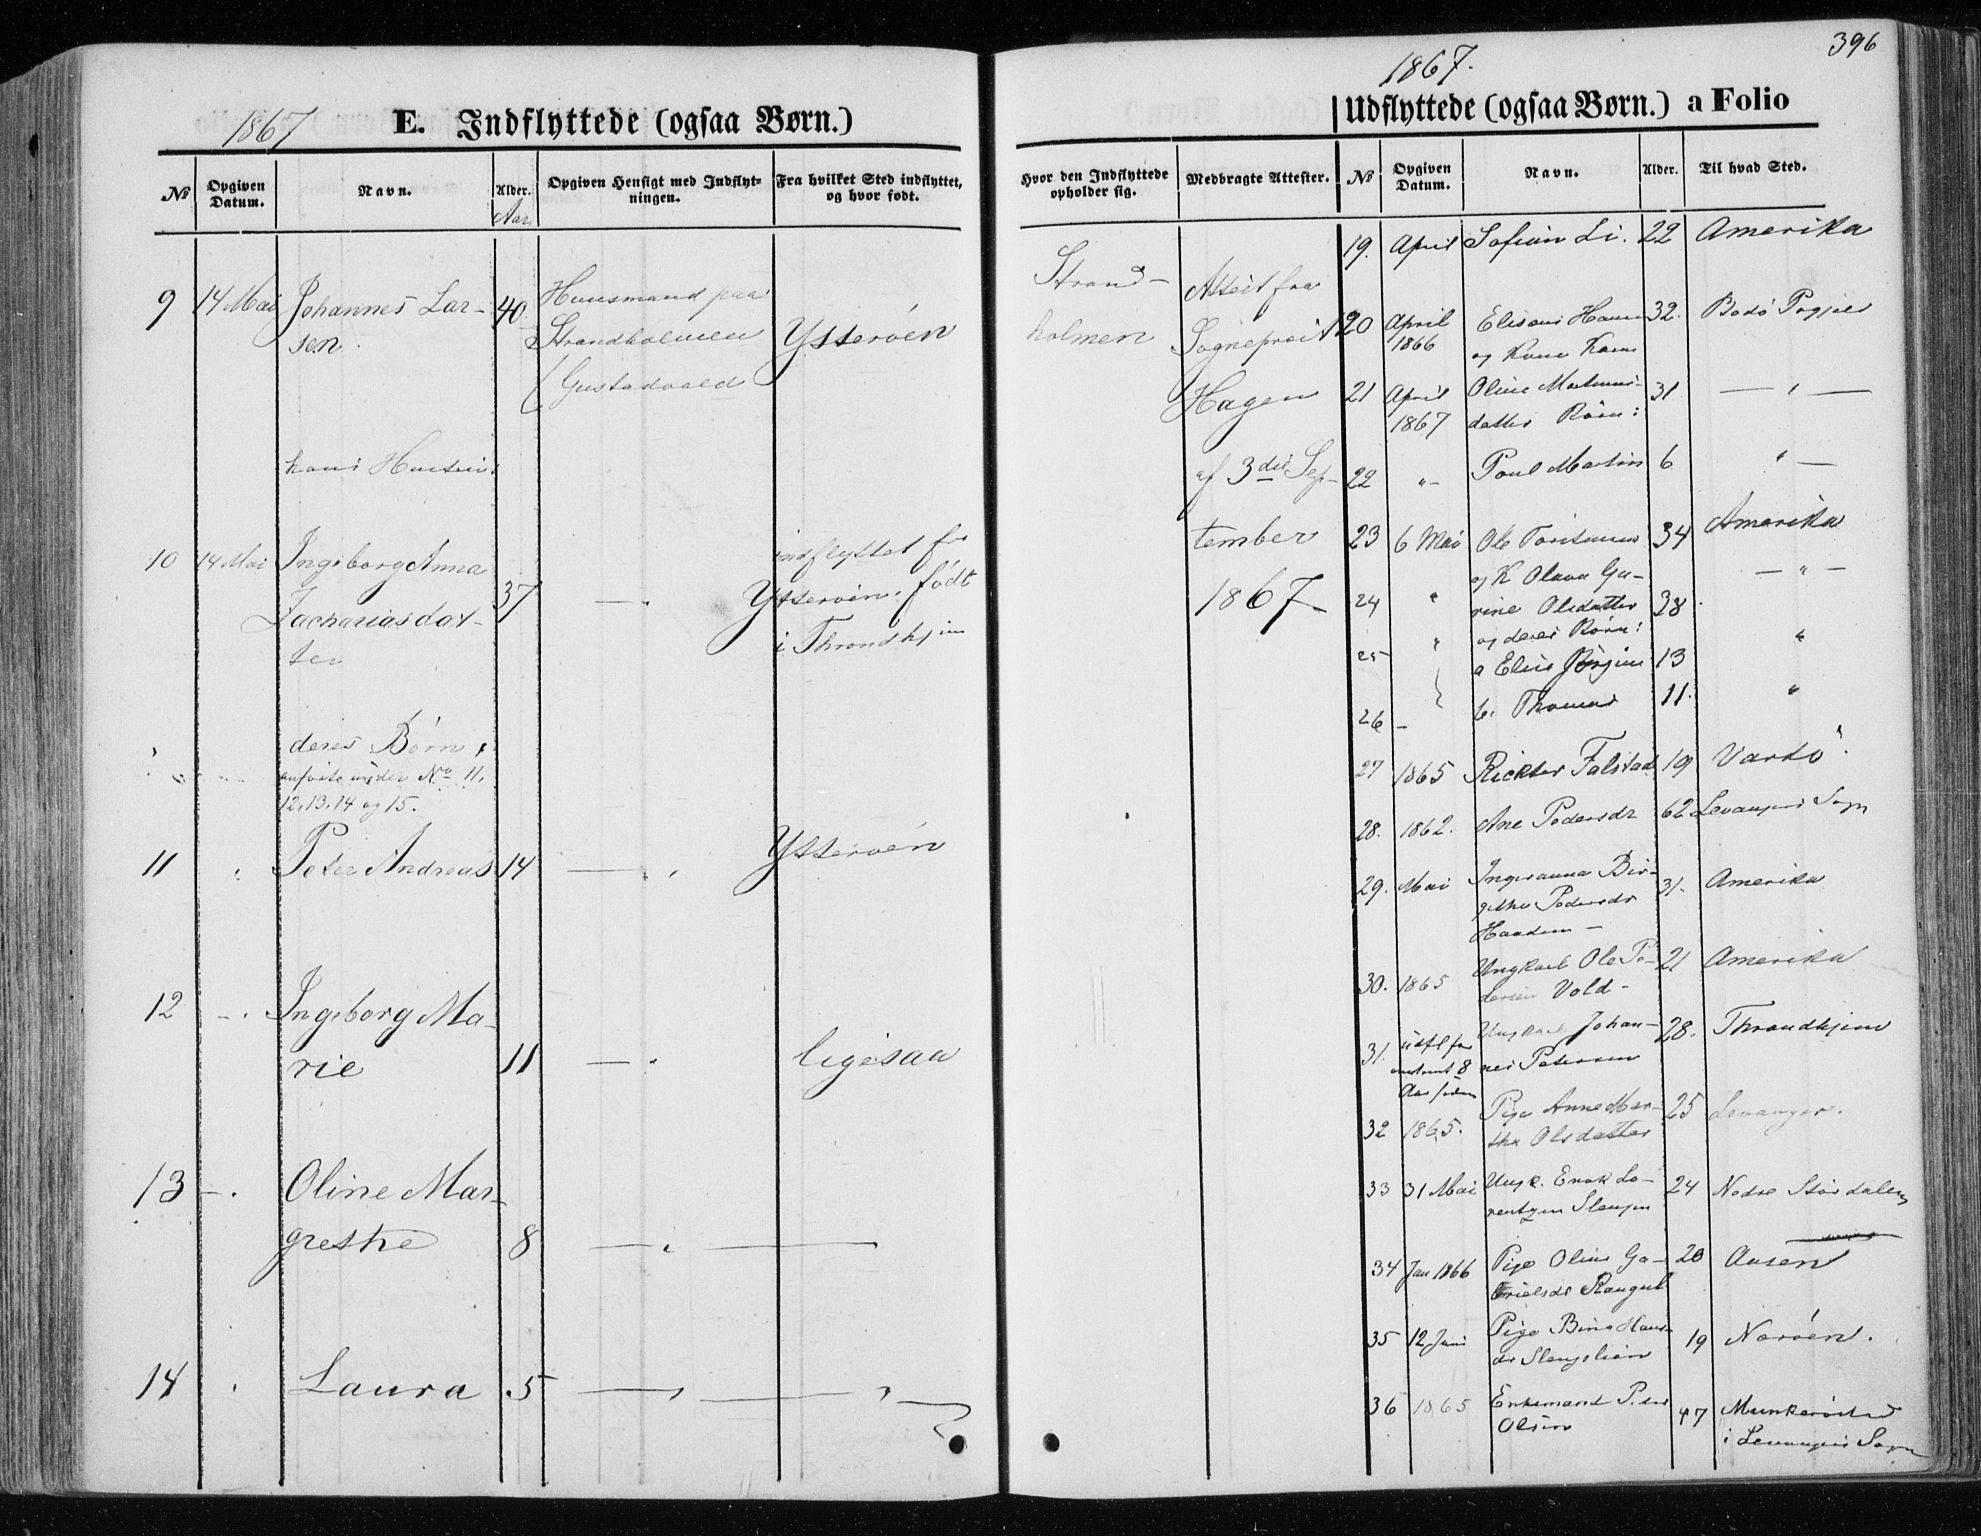 1867
E. Indflyttede (ogsaa Børn.)
No
Opgiven Datum.
Navn.
Alder.
Aar
Opgiven Hensigt med Indflyt-
ningen.
Fra hvilket Sted indflyttet,
og hvor født.
9 14 Mai Johannes Lar- 40 Huusmand paa
sen Strandholmen Ytterøen
Gustadvald
hans Hustru
10 14 Mai Ingeborg Anna 37 indflyttet fra
Zachariasdat- Ytterøen, født
ter i Throndhjem
deres Børn,
anførte under No 11,
12, 13, 14 og 15.
11 Peter Andreas 14 Ytterøen
12 Ingeborg Ma-
rie 11 ligesaa
13 Oline Mar-
grethe 8
14 Laura 5
1867.
396
Udflyttede (ogsaa Børn.) a Folio
Hvor den Indflyttede
opholder sig.
Medbragte Attester.
No
Opgiven
Datum.
Navn.
Alder.
Til hvad Sted.
Strand-
holmen
Attest fra
Sogneprest
Hagen
af 3die Sep-
tember
1867
19. April Li. 22 Amerika
20 April 1866 32.
og Kone
21 April 1867 Oline 31 — " —
datter Børn:
22 "- Poul Martin 6 " —
23 6 Mai Ole 34 Amerika
24 " og K Olava Ga-
rine Olsdatter 38 — " —
" og deres Børn:
25 a Elias Jørgen 13 "
26 - b. Thomas 11. "
27 1865 Rickter Falstad 19 Vardø.
28. 1862. Ane Pedersdr 62 Levangers Sogn
29. Mai Ingeranna Bir-
githa Pedersdr 31. Amerika
30. 1865 Ungkarl Ole Pe- 21 Amerika
dersen Vold -
31. udfl for Ungkarl Johan- 28. Throndhjem
omtrent 8 nes Petersen
Aar siden
32 1865. Pige Anne Mar- 25 Levanger.
tha Olsdatter
33 31 Mai Ungk. Enok Lo- 24 Nedre Størdalen
rentzen
34 Jan 1866 Pige Oline Ga- 20 Aasen
brielsdr
35 12 Juni Pige 19 Norøen.
36 1865 Enkemand Peder
Olsen 47
i Levangers Sogn